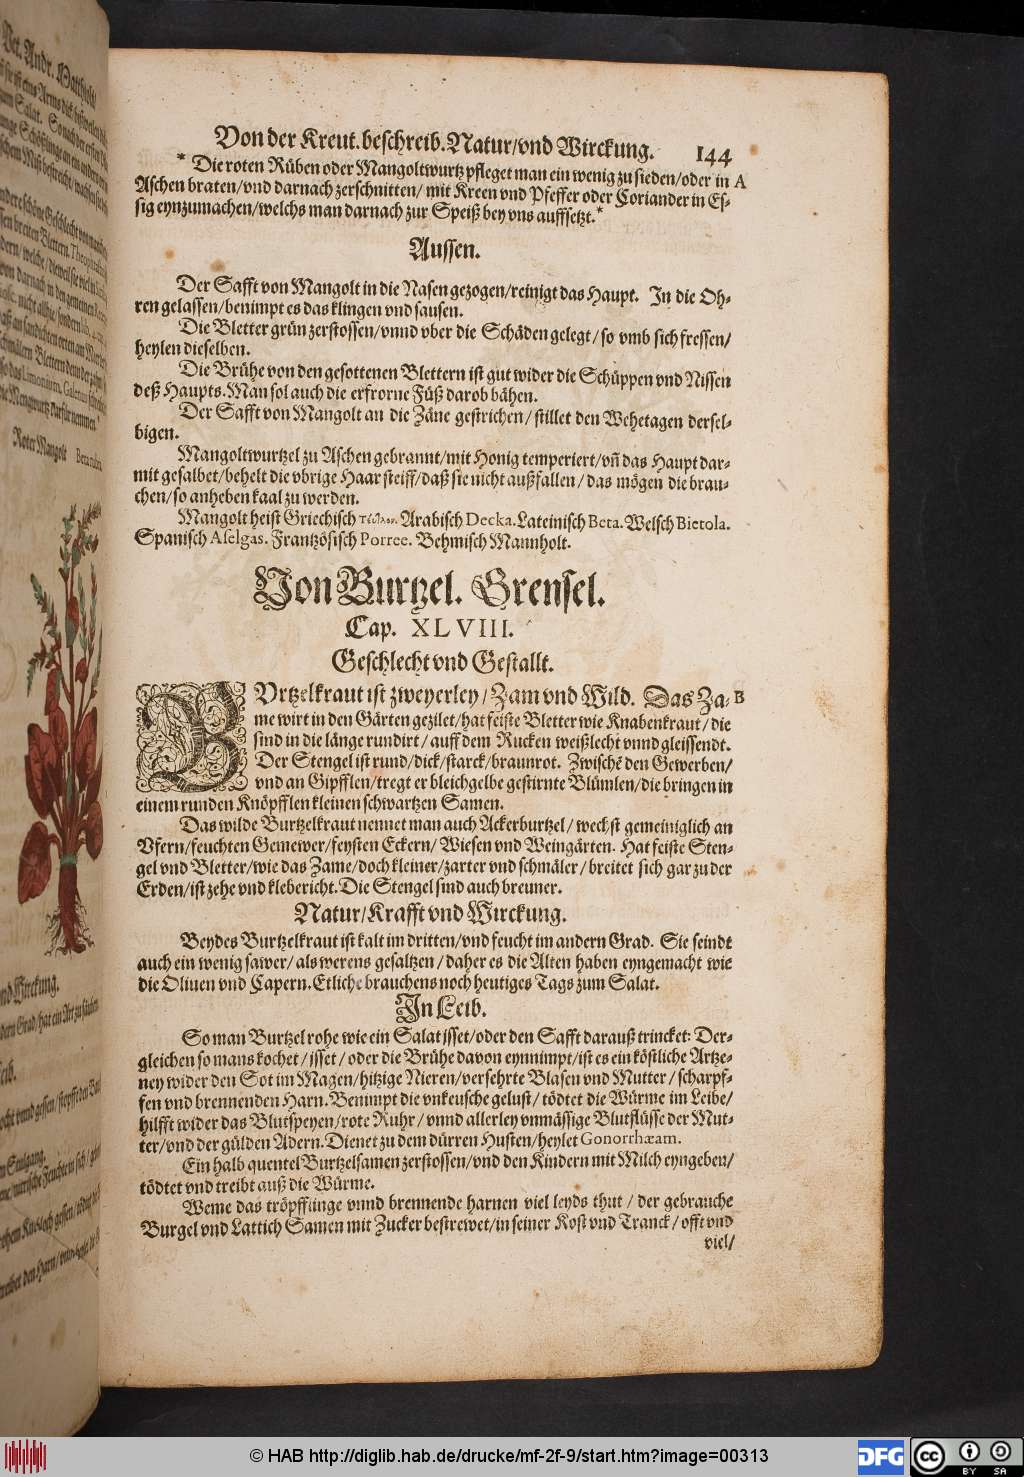 Von der Kreut. beschreib. Natur/vnd Wirckung. 144
* Die roten Rüben oder Mangoltwurtz pfleget man ein wenig zu sieden/oder in A
Aschen braten/vnd darnach zerschnitten/ mit Kreen vnd Pfeffer oder Coriander in Es-
sig eynzumachen/welchs man darnach zur Speiß bey vns auffsetzt.*
Aussen.
Der Safft von Mangolt in die Nasen gezogen/reinigt das Haupt. In die Oh-
ren gelassen/benimpt es das klingen vnd sausen.
Die Bletter grün zerstossen/vnnd vber die Schäden gelegt/ so vmb sich fressen/
heylen dieselben.
Die Brühe von den gesottenen Blettern ist gut wider die Schüppen vnd Nissen
deß Haupts. Man sol auch die erfrorne Füß darob bähen.
Der Safft von Mangolt an die Zäne gestrichen/ stillet den Wehetagen dersel-
bigen.
Mangoltwurtzel zu Aschen gebrannt/mit Honig temperiert/vñ das Haupt dar-
mit gesalbet/behelt die vbrige Haar steiff/daß sie nicht außfallen/ das mögen die brau-
chen/so anheben kaal zu werden.
Mangolt heist Griechisch Arabisch Decka. Lateinisch Beta. Welsch Bietola.
Spanisch Aselgas. Frantzösisch Porree. Behmisch Mannholt.
Von Burtzel. Grensel.
Cap. XLVIII.
Geschlecht vnd Gestallt.
BVrtzelkraut ist zweyerley/ Zam vnd Wild. Das Za- B
me wirt in den Gärten gezilet/hat feiste Bletter wie Knabenkraut/ die
sind in die länge rundirt/ auff dem Rucken weißlecht vnnd gleissendt.
Der Stengel ist rund/dick/starck/braunrot. Zwischẽ den Gewerben/
vnd an Gipfflen/tregt er bleichgelbe gestirnte Blümlen/die bringen in
einem runden Knöpfflen kleinen schwartzen Samen.
Das wilde Burtzelkraut nennet man auch Ackerburtzel/ wechst gemeiniglich an
Vfern/feuchten Gemewer/feysten Eckern/ Wiesen vnd Weingärten. Hat feiste Sten-
gel vnd Bletter/wie das Zame/doch kleiner/zarter vnd schmäler/ breitet sich gar zu der
Erden/ist zehe vnd klebericht. Die Stengel sind auch breuner.
Natur/Krafft vnd Wirckung.
Beydes Burtzelkraut ist kalt im dritten/vnd feucht im andern Grad. Sie seindt
auch ein wenig sawer/ als werens gesaltzen/ daher es die Alten haben eyngemacht wie
die Oliuen vnd Capern. Etliche brauchens noch heutiges Tags zum Salat.
In Leib.
So man Burtzel rohe wie ein Salat isset/oder den Safft darauß trincket: Der-
gleichen so mans kochet/ isset/ oder die Brühe davon eynnimpt/ist es ein köstliche Artze-
ney wider den Sot im Magen/hitzige Nieren/versehrte Blasen vnd Mutter/ scharpf-
fen vnd brennenden Harn. Benimpt die vnkeusche gelust/ tödtet die Würme im Leibe/
hilfft wider das Blutspeyen/rote Ruhr/ vnnd allerley vnmässige Blutflüsse der Mut-
ter/vnd der gülden Adern. Dienet zu dem dürren Husten/heylet Gonorrhæam.
Ein halb quentel Burtzelsamen zerstossen/vnd den Kindern mit Milch eyngeben/
tödtet vnd treibt auß die Würme.
Weme das tröpfflinge vnnd brennende harnen viel leyds thut/ der gebrauche
Burgel vnd Lattich Samen mit Zucker bestrewet/in seiner Kost vnd Tranck/ offt vnd
viel/
Pet. Andr. Matthioli/
Roter Mangolt Beta rubra
© HAB http://diglib.hab.de/drucke/mf-2f-9/start.htm?image=00313
DFG
cc
BY SA